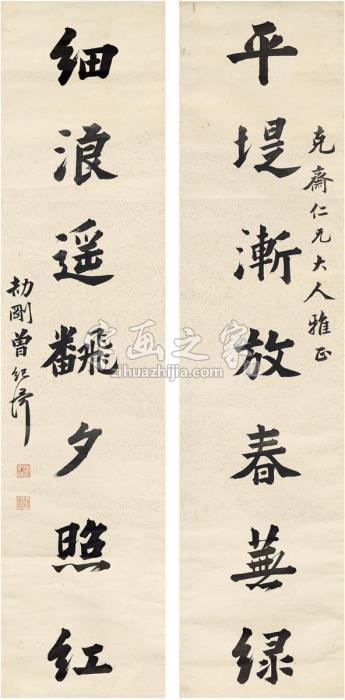 克齋仁兄大人雅正
平堤漸放春蕪綠
細浪遥飜夕照紅
劼剛曾紀澤
字画之家
zihuazhijia.com